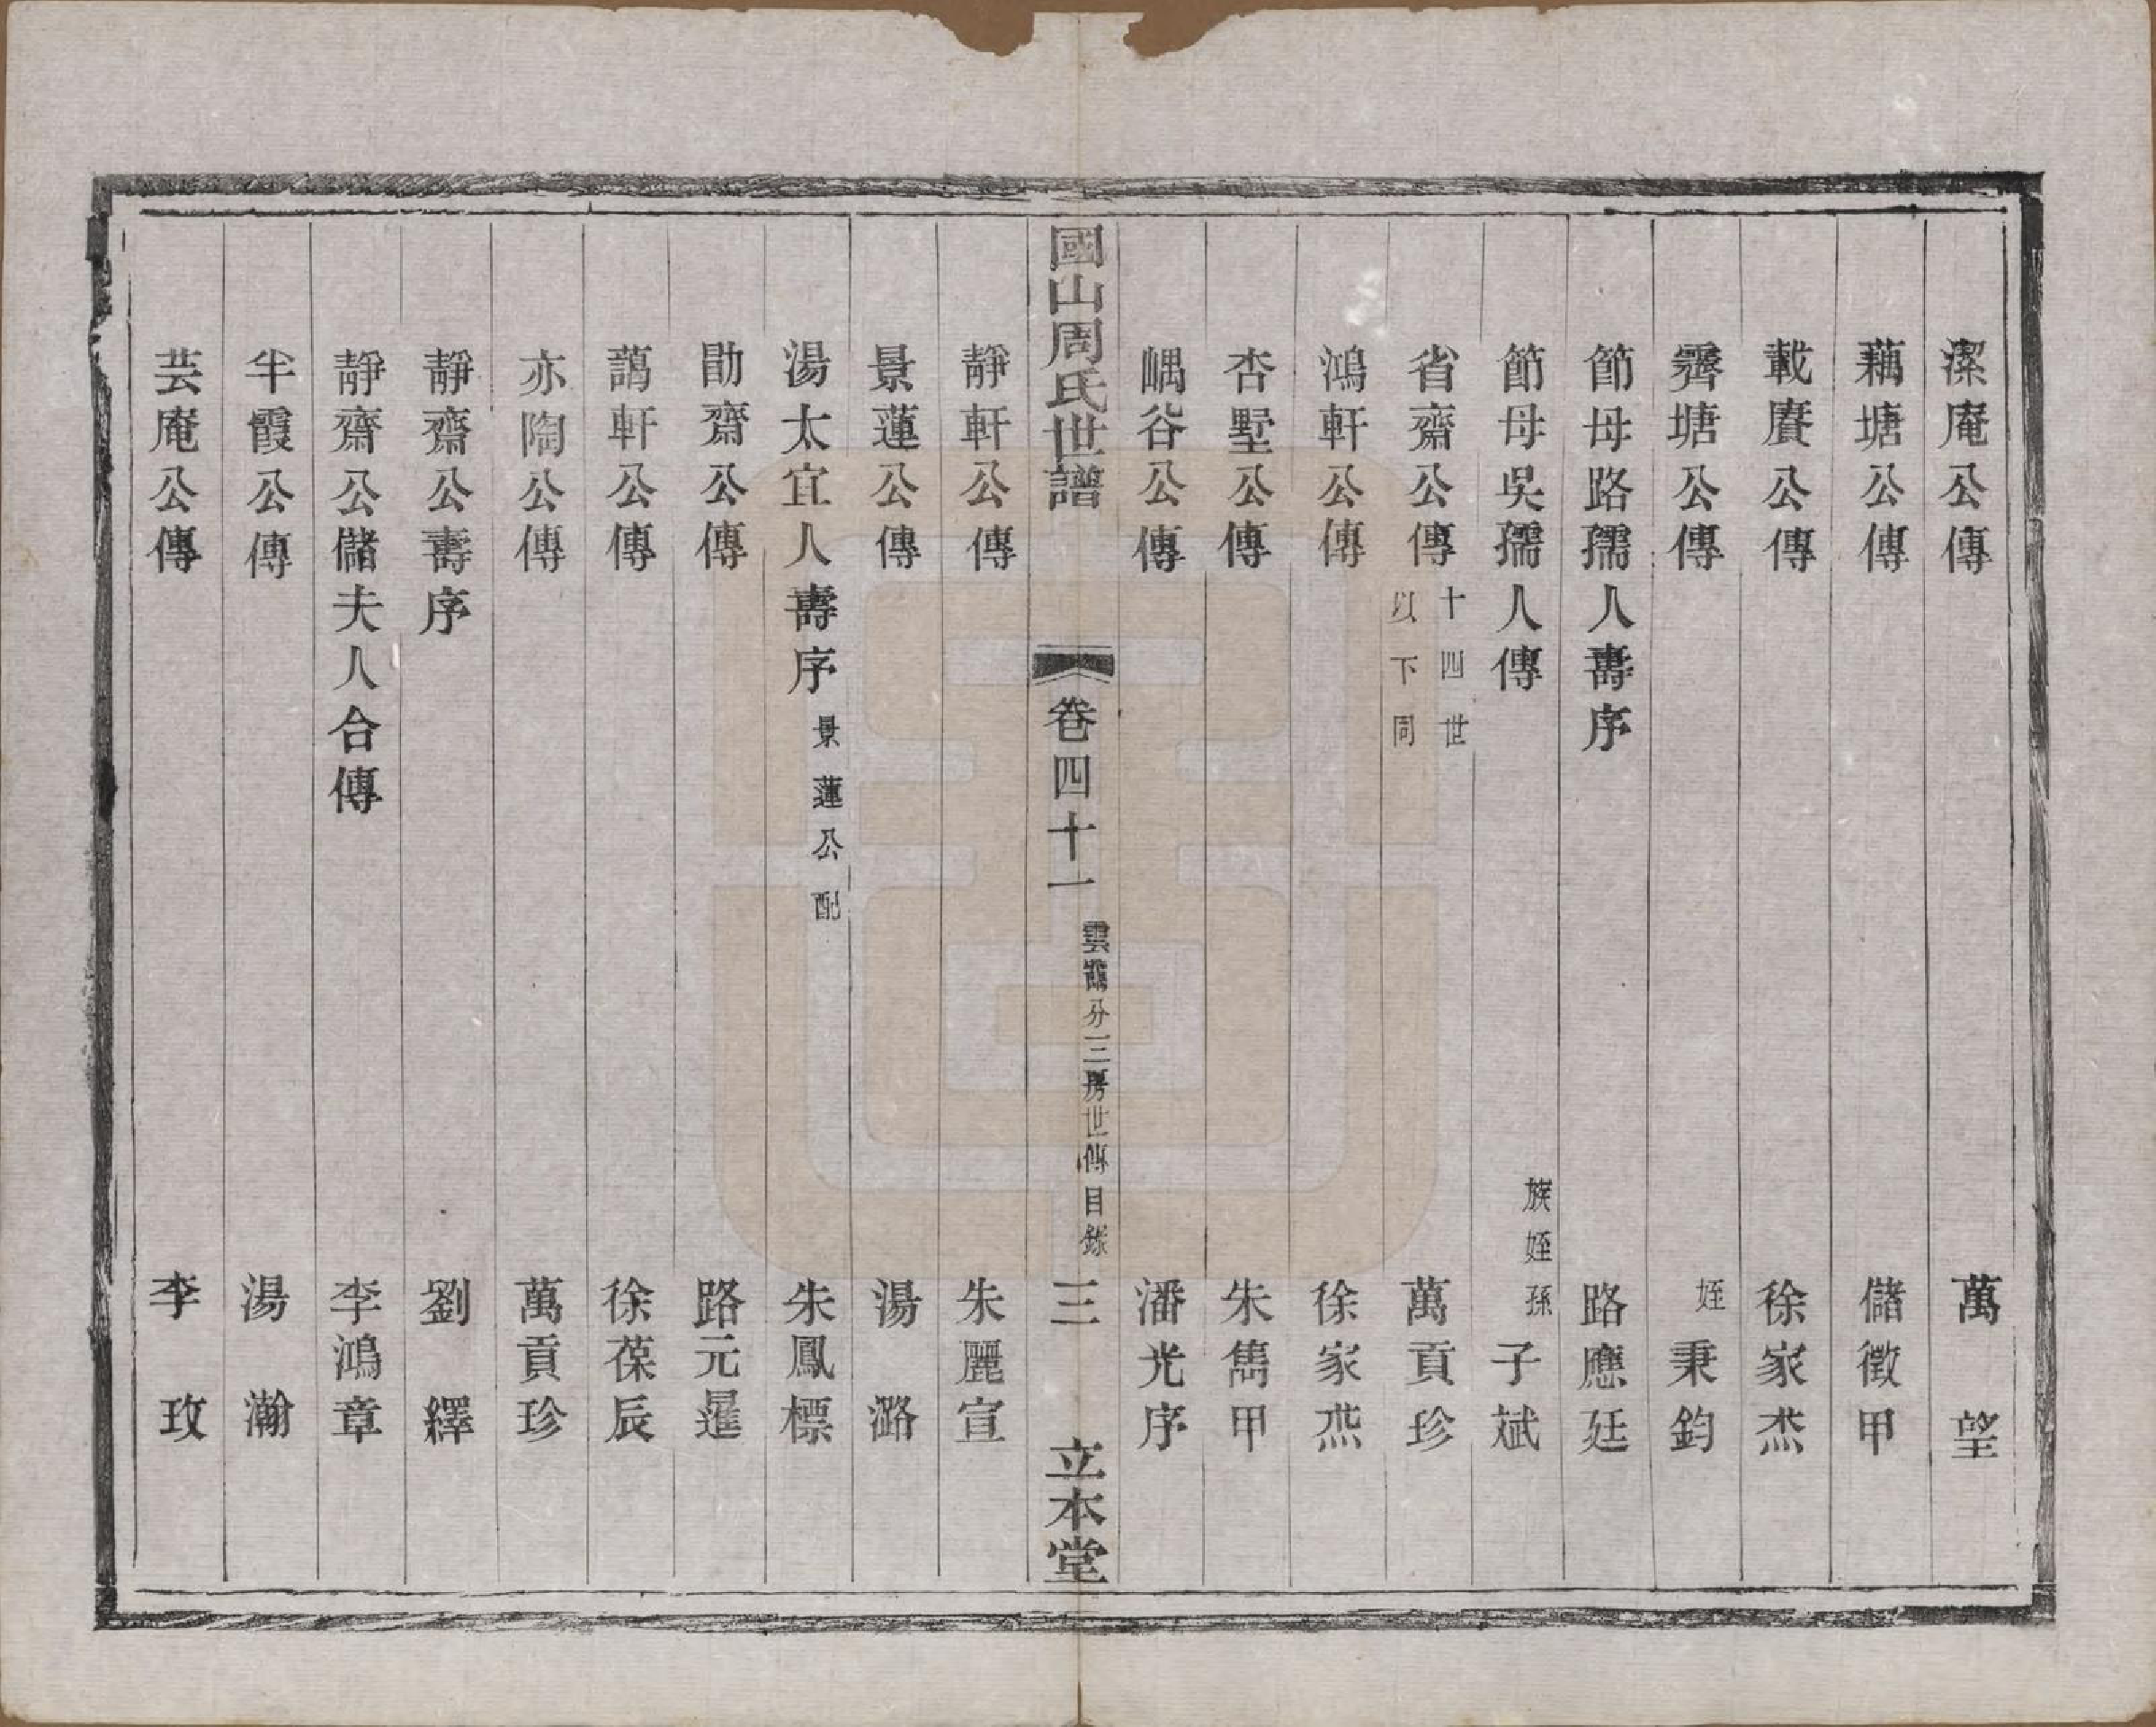 潔庵公傳　萬望
藕塘公傳　儲徵甲
載賡公傳　徐家杰
霽塘公傳　姪秉鈞
節母路孺人壽序　路應廷
節母吳孺人傳　族姪孫子斌
省齋公傳十四世以下同　萬貢珍
鴻軒公傳　徐家杰
杏墅公傳　朱雋甲
嵎谷公傳　潘光序
國山周氏世譜　卷四十一　雲霱分三房世傳目錄　三　立本堂
靜軒公傳　朱麗宣
景蓮公傳　湯潞
湯太宜人壽序景蓮公配　朱鳳標
勖齋公傳　路元暹
藹軒公傳　徐葆辰
亦陶公傳　萬貢珍
靜齋公壽序　劉繹
靜齋公儲夫人合傳　李鴻章
半霞公傳　湯瀚
芸庵公傳　李玫